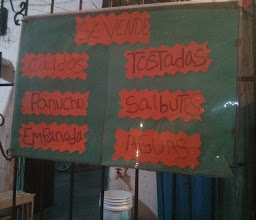 SE VENDE
Caldos
TOSTADAS
Panucho
Salbutes
Empanada
AGUAS